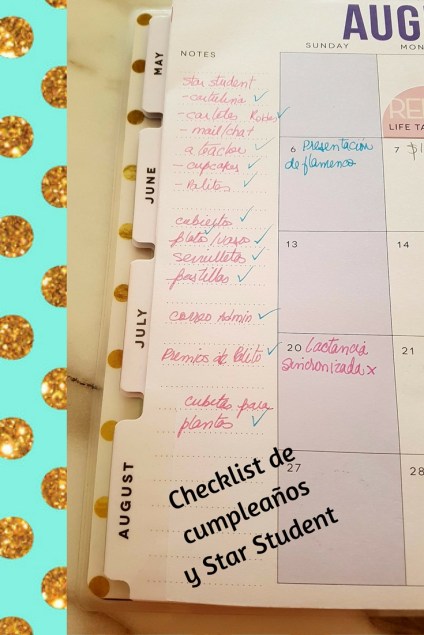 AUG
SUNDAY MON
NOTES
MAY
star student
- cartulina ✓
- carteles ✓
- mail/chat
a teacher ✓
- cupcakes ✓
- Palitos ✓
RE
LIFE TA
6 Presentación
de flamenco
7 $1
JUNE
cubiertos ✓
plato/vaso ✓
servilletas ✓
pastillas ✓
13
14
JULY
correo Admin ✓
Premios de Palito ✓
20 Lactancia
sincronizada x
21
cubetas para
plantas ✓
AUGUST
27
28
Checklist de
cumpleaños
y Star Student